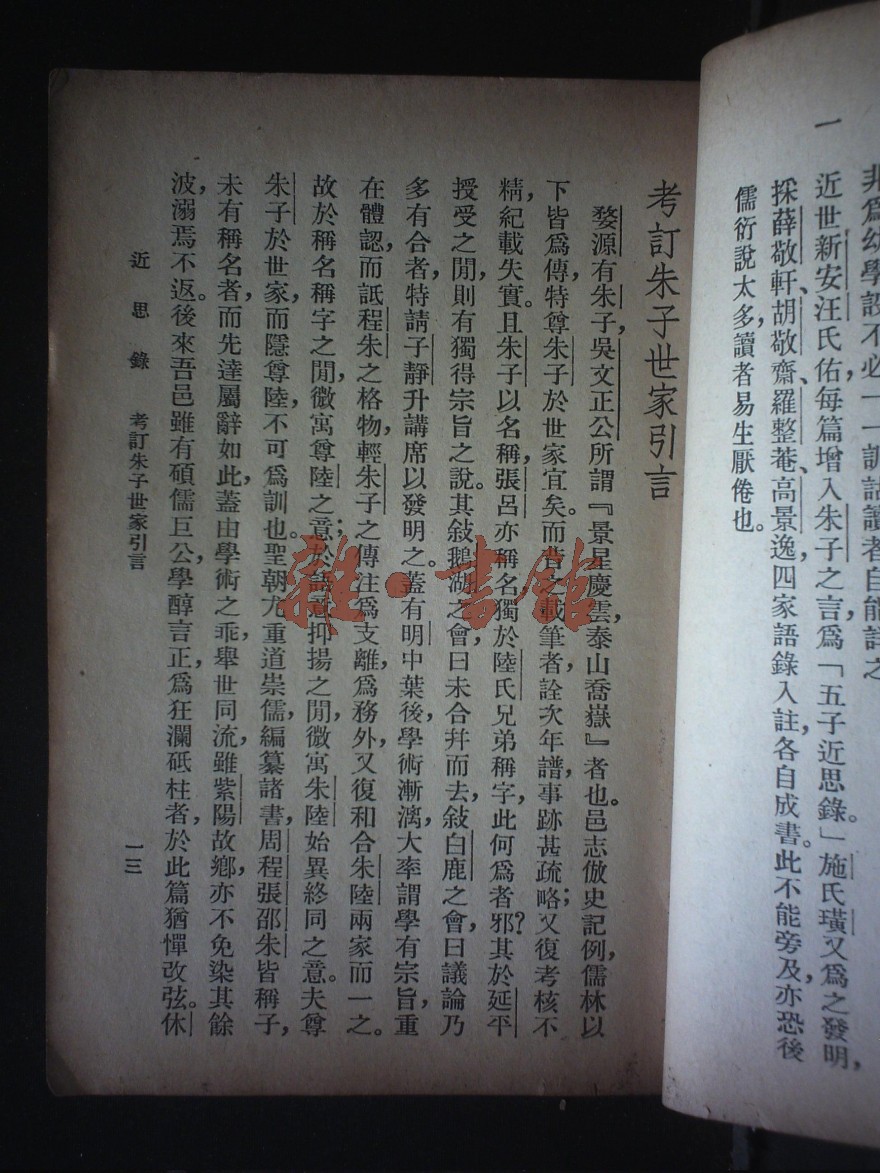 非爲幼學設不必一一訓詁讀者自能詳之
一　近世新安汪氏佑每篇增入朱子之言，爲「五子近思錄」。施氏璜又爲之發明，
採薛敬軒、胡敬齋、羅整菴、高景逸，四家語錄入註，各自成書。此不能旁及，亦恐後
儒衍說太多，讀者易生厭倦也。
考訂朱子世家引言
婺源有朱子，吳文正公所謂『景星慶雲，泰山喬嶽』者也。邑志倣史記例，儒林以
下皆爲傳，特尊朱子於世家宜矣。而昔之載筆者，詮次年譜，事跡甚疏略；又復考核不
精，紀載失實。且朱子以名稱，張呂亦稱名，獨於陸氏兄弟稱字，此何爲者邪？其於延平
授受之閒，則有獨得宗旨之說。其敍鵝湖之會，曰未合幷而去，敍白鹿之會，曰議論乃
多有合者，特請子靜升講席以發明之。蓋有明中葉後，學術漸漓，大率謂學有宗旨，重
在體認，而詆程朱之格物，輕朱子之傳注爲支離，爲務外，又復和合朱陸兩家而一之。
故於稱名稱字之閒，微寓尊陸之意；於語意抑揚之閒，微寓朱陸始異終同之意。夫尊
朱子於世家，而隱尊陸，不可爲訓也。聖朝尤重道崇儒，編纂諸書，周程張邵朱皆稱子，
未有稱名者，而先達屬辭如此，蓋由學術之乖，舉世同流，雖紫陽故鄉，亦不免染其餘
波，溺焉不返。後來吾邑雖有碩儒巨公，學醇言正，爲狂瀾砥柱者，於此篇猶憚改弦。休
近思錄　考訂朱子世家引言
一三
雜·書館